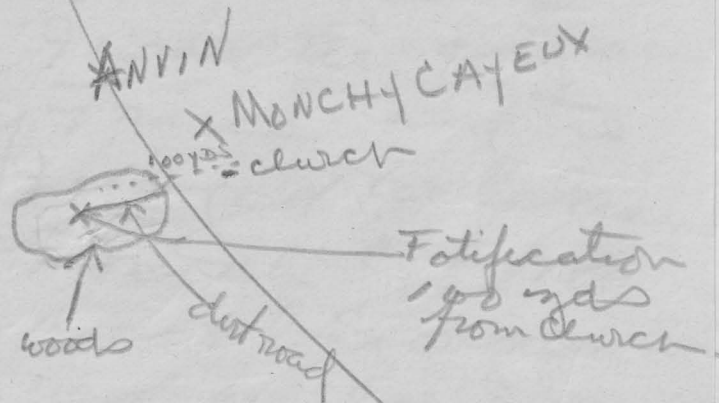 ANVIN
X MONCHY CAYEUX
100 YDS church
Fotification
100 yds
from church
woods
dirt road